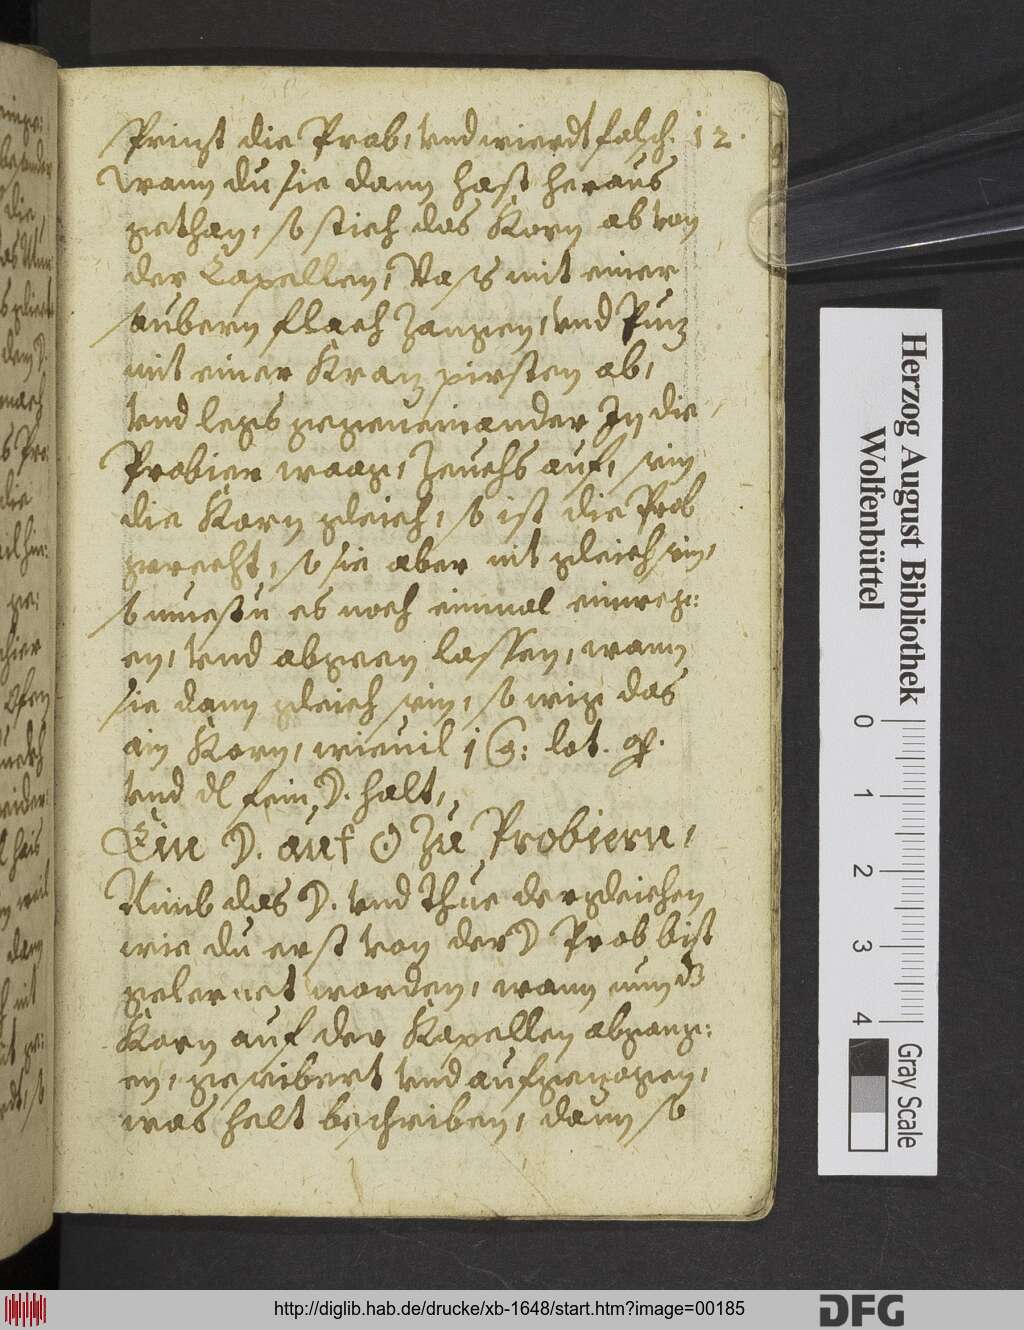 springt die Prob, vnd wierdt falsch. 12.
wann du sie dann hast heraus
gethan, so stich das Korn ab von
der Capellen, vasß mit einer
saubern flach Zangen, vnd Puz
mit einer Kraz pirsten ab,
vnd legs gegeneinander In die
Probier waag, Zeuchs auf, sein
die Korn gleich, so ist die Prob
gerecht, so sie aber nit gleich sein,
so muestu es noch einmal einweg:
en, vnd abgeen lassen, wann
sie dann gleich sein, so wig das
ain Korn, wieuil 1 lot. 
vnd dl fein ☽. halt,
Ein ☽. auf ☉ Zu Probiern,
Nimb das ☽. vnd Thue dergleichen
wie du erst von der ☽ Prob bist
gelernet worden, wann nun dz
Korn auf der Kapellen abgang:
en, gesaibert vnd aufgezogen,
was halt beschreiben, dann so
Herzog August Bibliothek
Wolfenbüttel
0 1 2 3 4
Gray Scale
http://diglib.hab.de/drucke/xb-1648/start.htm?image=00185
DFG